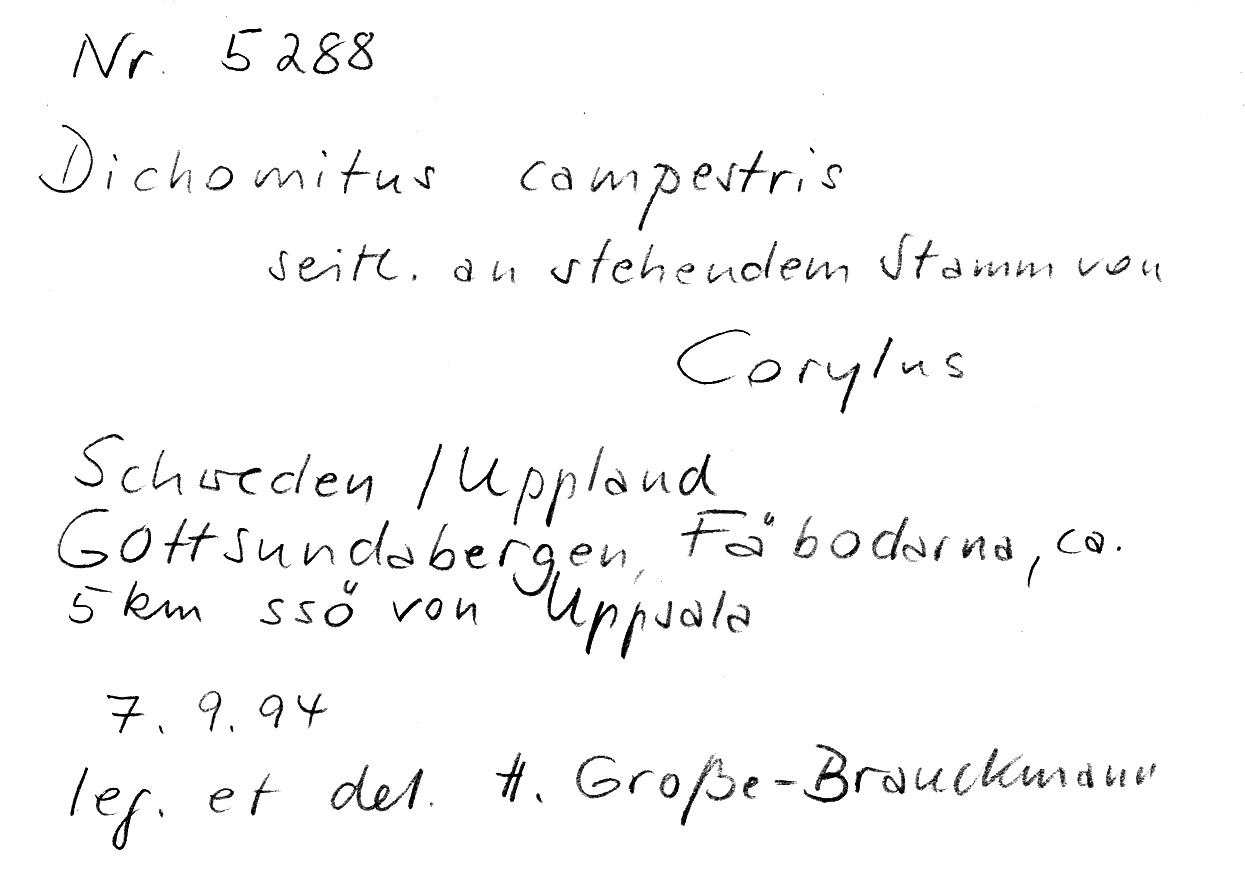 Nr. 5288
Dichomitus campestris
seitl. an stehendem Stamm von
Corylus
Schweden / Uppland
Gottsundabergen, Fäbodarna, ca.
5 km ssö von Uppsala
7. 9. 94
leg. et det. H. Große-Brauckmann